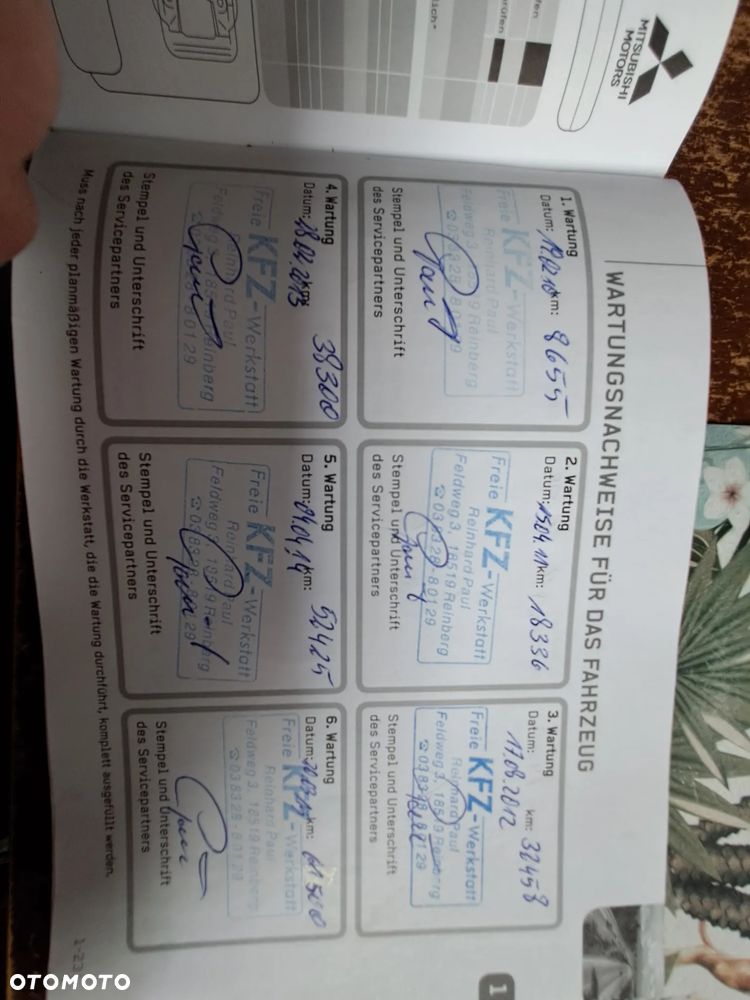 MITSUBISHI
MOTORS
WARTUNGSNACHWEISE FÜR DAS FAHRZEUG
1. Wartung
Datum: km: 8655
Freie KFZ-Werkstatt
Reinhard Paul
Feldweg 3, 18519 Reinberg
Stempel und Unterschrift
des Servicepartners
2. Wartung
Datum: 15.04.11 km: 18336
Freie KFZ-Werkstatt
Reinhard Paul
Feldweg 3, 18519 Reinberg
☎ 038328-80129
Stempel und Unterschrift
des Servicepartners
3. Wartung
Datum: 17.08.2012 km: 32458
Freie KFZ-Werkstatt
Reinhard Paul
Feldweg 3, 18519 Reinberg
☎ 038328-80129
Stempel und Unterschrift
des Servicepartners
4. Wartung
Datum: 18.04.2013 km: 38300
Freie KFZ-Werkstatt
Reinhard Paul
Feldweg 3, 18519 Reinberg
☎ 038328-80129
Stempel und Unterschrift
des Servicepartners
5. Wartung
Datum: km: 52425
Freie KFZ-Werkstatt
Reinhard Paul
Feldweg 3, 18519 Reinberg
☎ 038328-80129
Stempel und Unterschrift
des Servicepartners
6. Wartung
Datum: km: 61500
Freie KFZ-Werkstatt
Reinhard Paul
Feldweg 3, 18519 Reinberg
☎ 038328-80129
Stempel und Unterschrift
des Servicepartners
Muss nach jeder planmäßigen Wartung durch die Werkstatt, die die Wartung durchführt, komplett ausgefüllt werden.
1-23
1
OTOMOTO